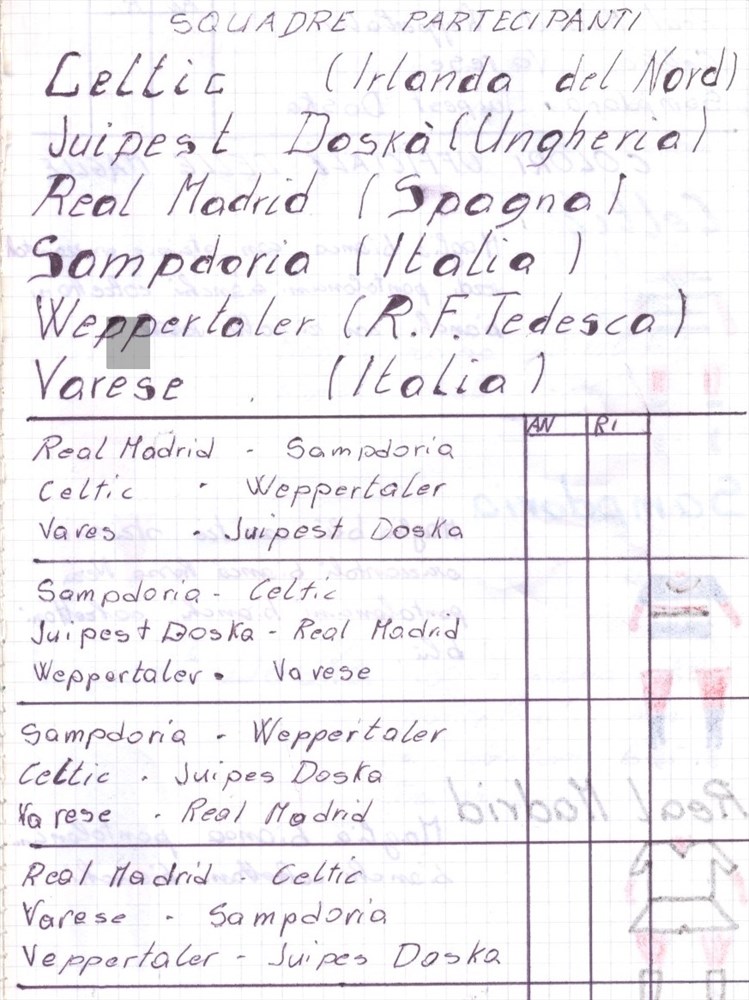 SQUADRE PARTECIPANTI
Celtic (Irlanda del Nord)
Juipest Doskà (Ungheria)
Real Madrid (Spagna)
Sampdoria (Italia)
Weppertaler (R.F. Tedesca)
Varese (Italia)
AN RI
Real Madrid - Sampdoria
Celtic - Weppertaler
Vares - Juipest Doska
Sampdoria - Celtic
Juipest Doska - Real Madrid
Weppertaler - Varese
Sampdoria - Weppertaler
Celtic - Juipes Doska
Varese - Real Madrid
Real Madrid - Celtic
Varese - Sampdoria
Veppertaler - Juipes Doska
Real Madrid